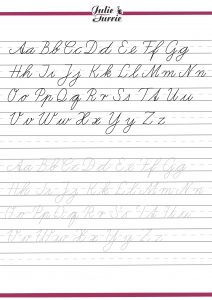 Julie
Jurrie
Aa Bb Cc Dd Ee Ff Gg
Hh Ii Jj Kk Ll Mm Nn
Oo Pp Qq Rr Ss Tt Uu
Vv Ww Xx Yy Zz
Aa Bb Cc Dd Ee Ff Gg
Hh Ii Jj Kk Ll Mm Nn
Oo Pp Qq Rr Ss Tt Uu
Vv Ww Xx Yy Zz